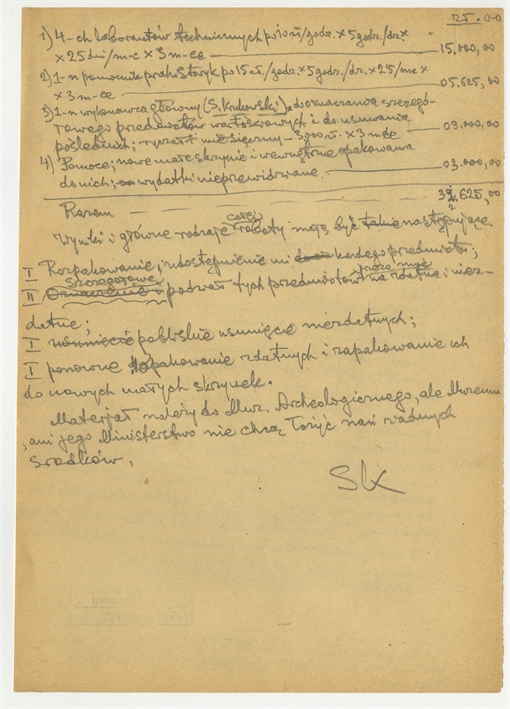 zł.-00
1) 4-ch laborantów technicznych po 10 zł/godz. x 5 godz./dz. x
x 25 dni/m-c x 3 m-ce 15.000,00
2) 1-n pomocnik po 15 zł./godz. x 5 godz./dz. x 25/m-c x
x 3 m-ce 05.625,00
3) 1-n wykonawca główny (S. Krukowski), do oznaczania szczegó-
łowego przedmiotów wartościowych i do usuwania
poślednich; ryczałt miesięczny – 3000 zł. x 3 m-ce 09.000,00
4) Pomoce; nowe małe skrzynie i wewnętrzne opakowania
do nich; wydatki nieprzewidziane 03.000,00
Razem 32.625,00
Wyniki i główne rodzaje całej roboty mają być takie następujące
I Rozpakowanie i udostępnienie mi każdego przedmiotu;
II szczegółowe podział tych przedmiotów na zdatne i niez-
datne;
I usunięcie niezdatnych;
I ponowne opakowanie zdatnych i zapakowanie ich
do nowych małych skrzynek.
Materjał należy do Muz. Archeologicznego, ale Muzeum
, ani jego Ministerstwo nie chcą łożyć nań żadnych
środków.
SK